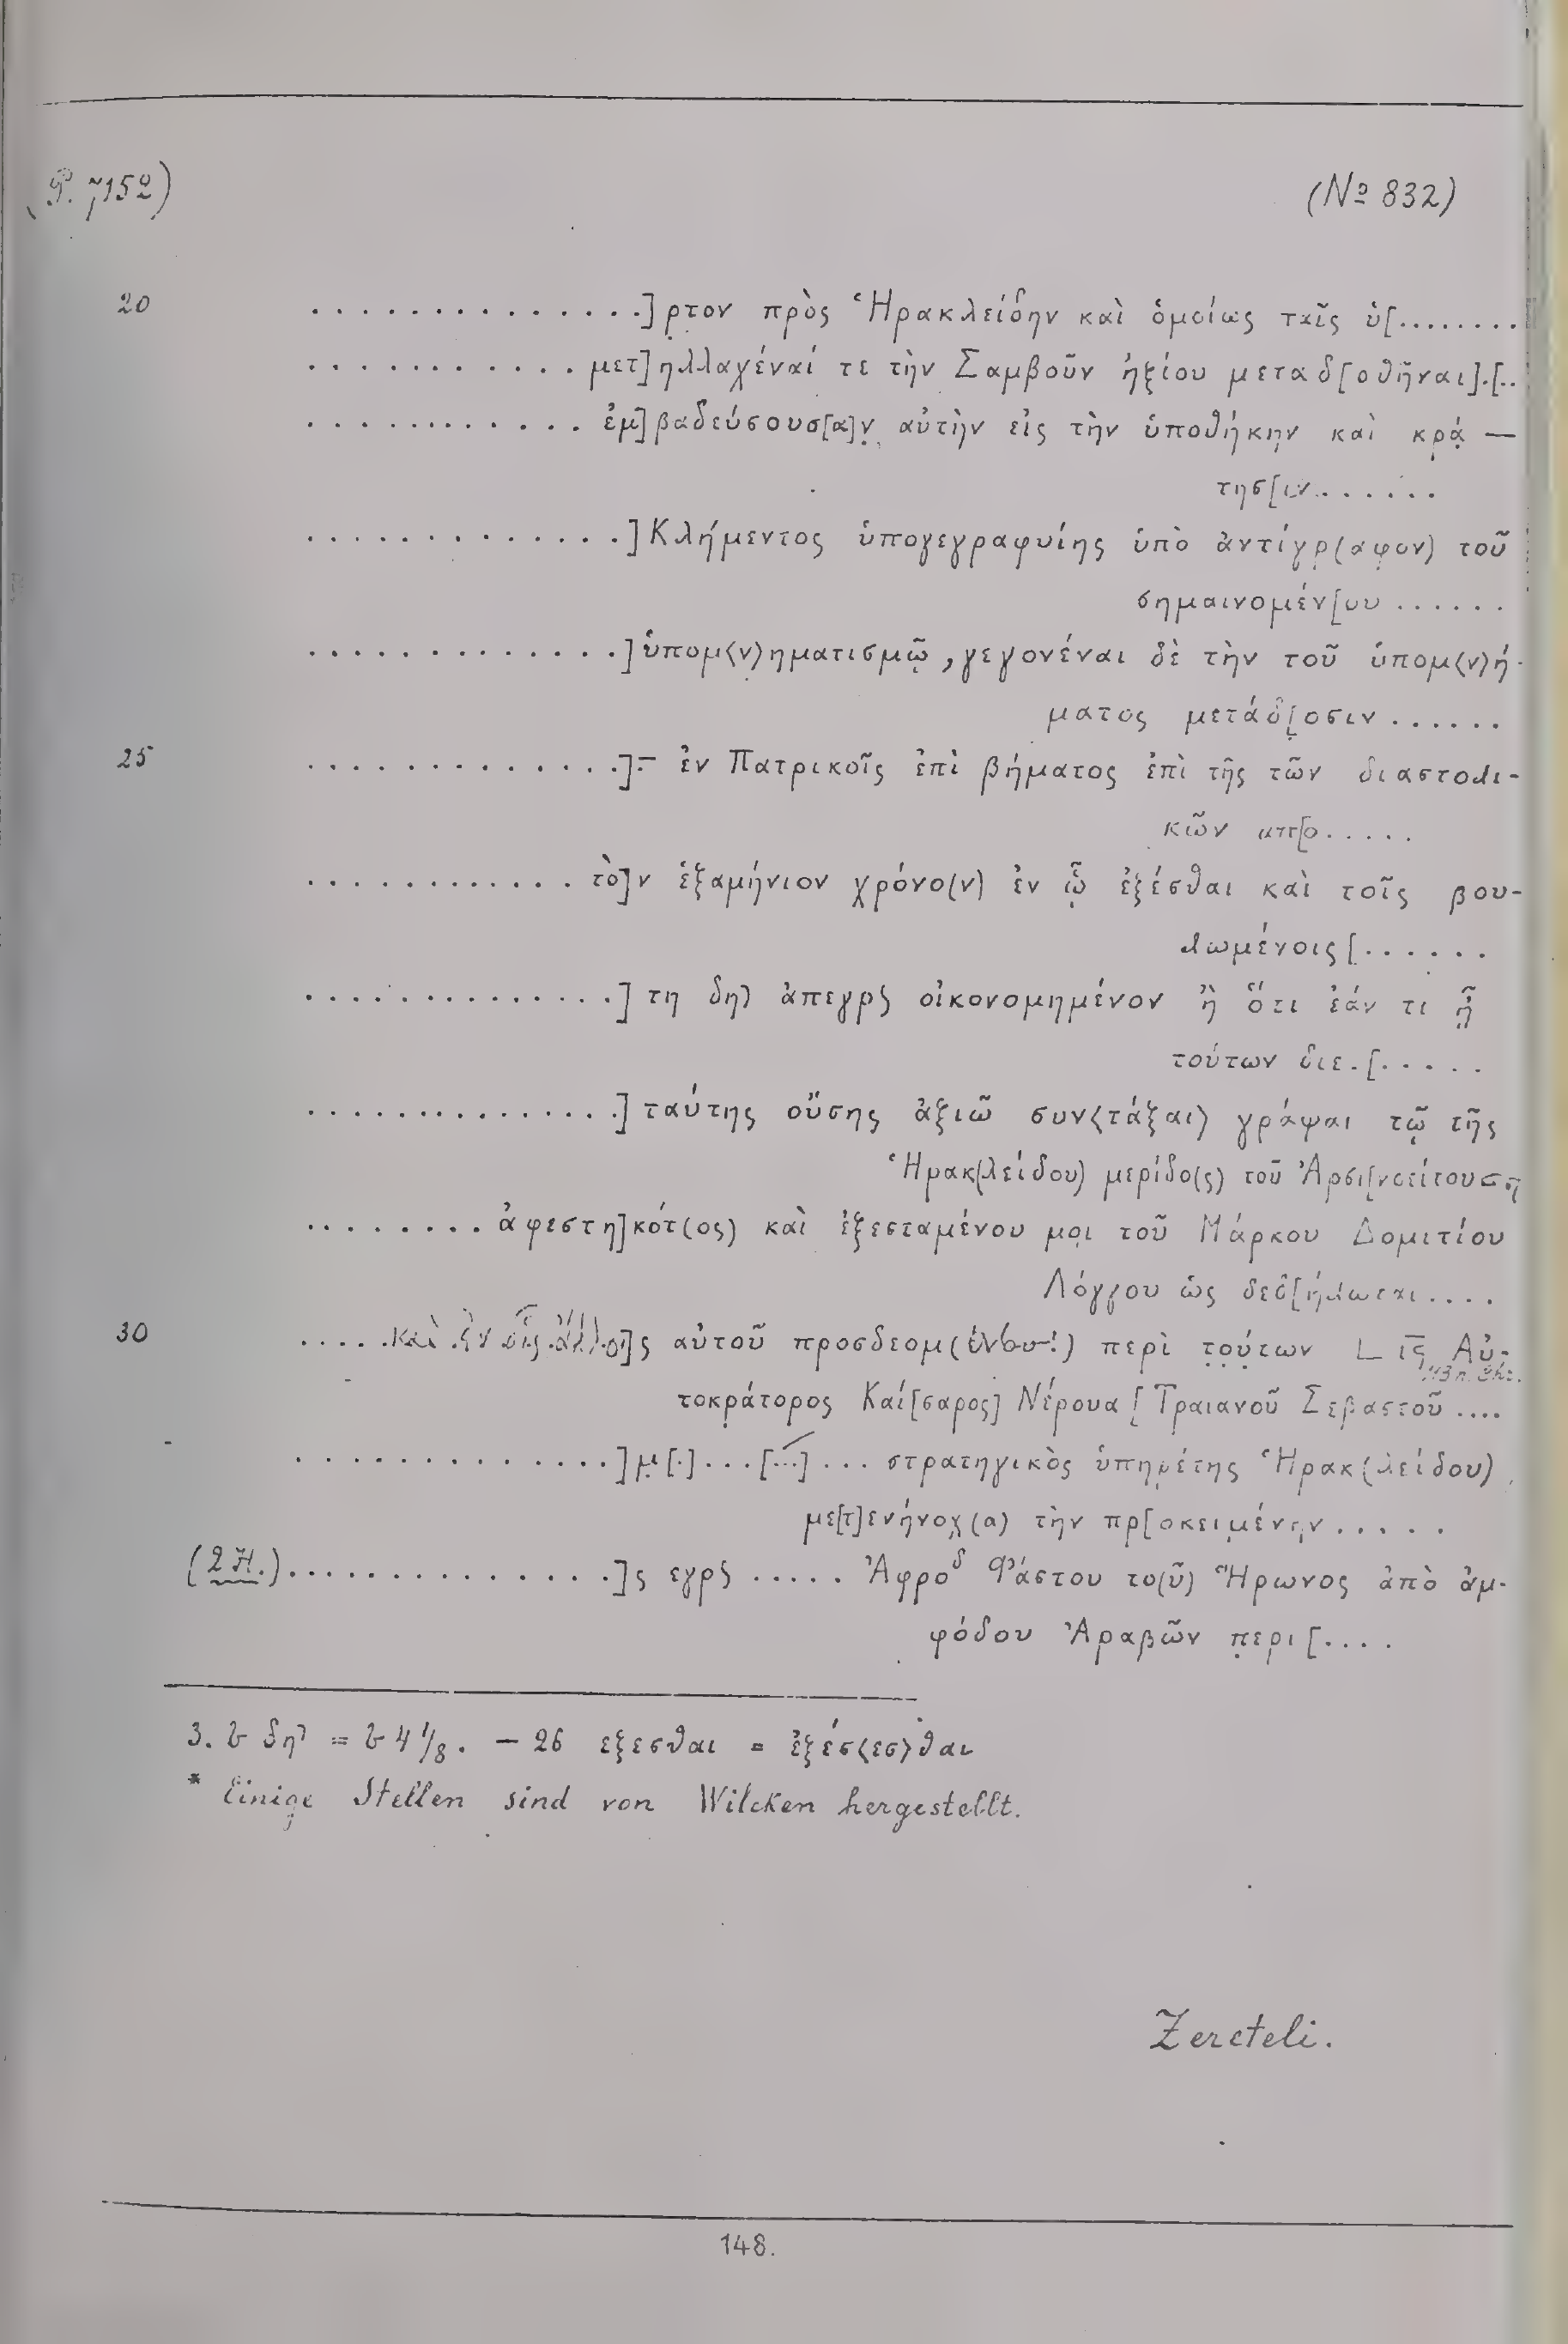 (P. 7152) (No 832)
20 ..............]ρτον πρὸς Ἡρακλείδην καὶ ὁμοίως ταῖς ὑ[........
........... μετ]ηλλαγέναί τε τὴν Σαμβοῦν ἠξίου μεταδ[οθῆναι].[..
........... ἐμ]βαδεύσουσ[α]ν αὐτὴν εἰς τὴν ὑποθήκην καὶ κρά—
τησ[ιν......
.............]Κλήμεντος ὑπογεγραφυίης ὑπὸ ἀντίγρ(αφον) τοῦ
σημαινομέν[ου ......
.............]ὑπομ⟨ν⟩ηματισμῷ, γεγονέναι δὲ τὴν τοῦ ὑπομ⟨ν⟩ή-
ματος μετάδ[οσιν ......
25 .............].— ἐν Πατρικοῖς ἐπὶ βήματος ἐπὶ τῆς τῶν διαστολι-
κῶν απ[ο.....
........... τὸ]ν ἑξαμήνιον χρόνο(ν) ἐν ᾧ ἐξέσθαι καὶ τοῖς βου-
λωμένοις[......
.............] τη δη) ἀπεγρς οἰκονομημένον ἢ ὅτι ἐάν τι ᾖ
τούτων διε.[.....
.............] ταύτης οὔσης ἀξιῶ συν⟨τάξαι⟩ γράψαι τῷ τῆς
Ἡρακ(λείδου) μερίδο(ς) τοῦ Ἀρσι[νοείτου
........ ἀφεστη]κότ(ος) καὶ ἐξεσταμένου μοι τοῦ Μάρκου Δομιτίου
Λόγγου ὡς δεδ[ήλωται....
30 .....καὶ ἐν οἷς ἄλλοι]ς αὐτοῦ προσδεομ( ) περὶ τούτων L ις Αὐ-
τοκράτορος Καί[σαρος] Νέρουα [Τραιανοῦ Σεβαστοῦ ....
.............]μ[.]...[...]... στρατηγικὸς ὑπηρέτης Ἡρακ(λείδου)
με[τ]ενήνοχ(α) τὴν πρ[οκειμένην.....
(2 H.).............]ς εγρς ..... Ἀφροδ Φάστου το(ῦ) Ἥρωνος ἀπὸ ἀμ-
φόδου Ἀράβων περι[....
3. δη) = 4 1/8. — 26 εξεσθαι = ἐξέσ⟨εσ⟩θαι
* Einige Stellen sind von Wilcken hergestellt.
Zereteli.
148.